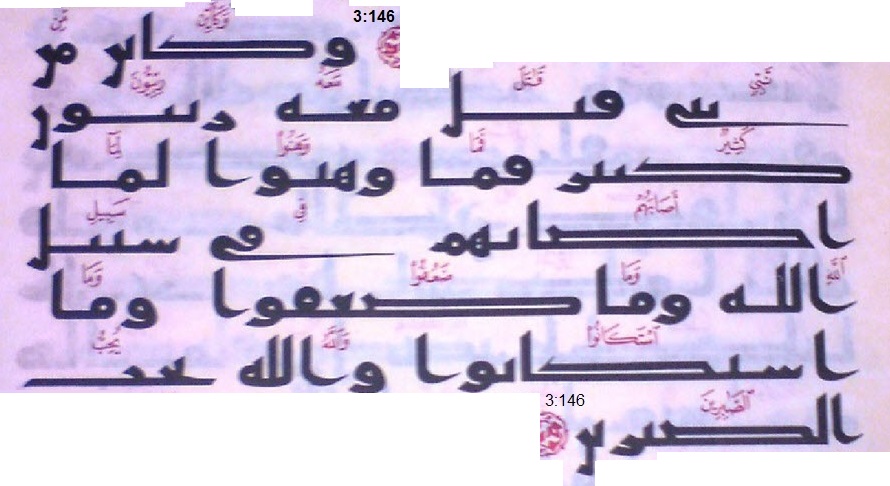 3:146
وَكَأَيِّن مِّن
وكاين من
نَّبِيٍّ قَٰتَلَ مَعَهُ رِبِّيُّونَ
نبي قتل معه ربيون
كَثِيرٌ فَمَا وَهَنُوا لِمَا
كثير فما وهنوا لما
أَصَابَهُمْ فِي سَبِيلِ
اصابهم في سبيل
اللَّهِ وَمَا ضَعُفُوا وَمَا
الله وما ضعفوا وما
اسْتَكَانُوا وَاللَّهُ يُحِبُّ
استكانوا والله يحب
الصَّٰبِرِينَ
الصبرين
3:146